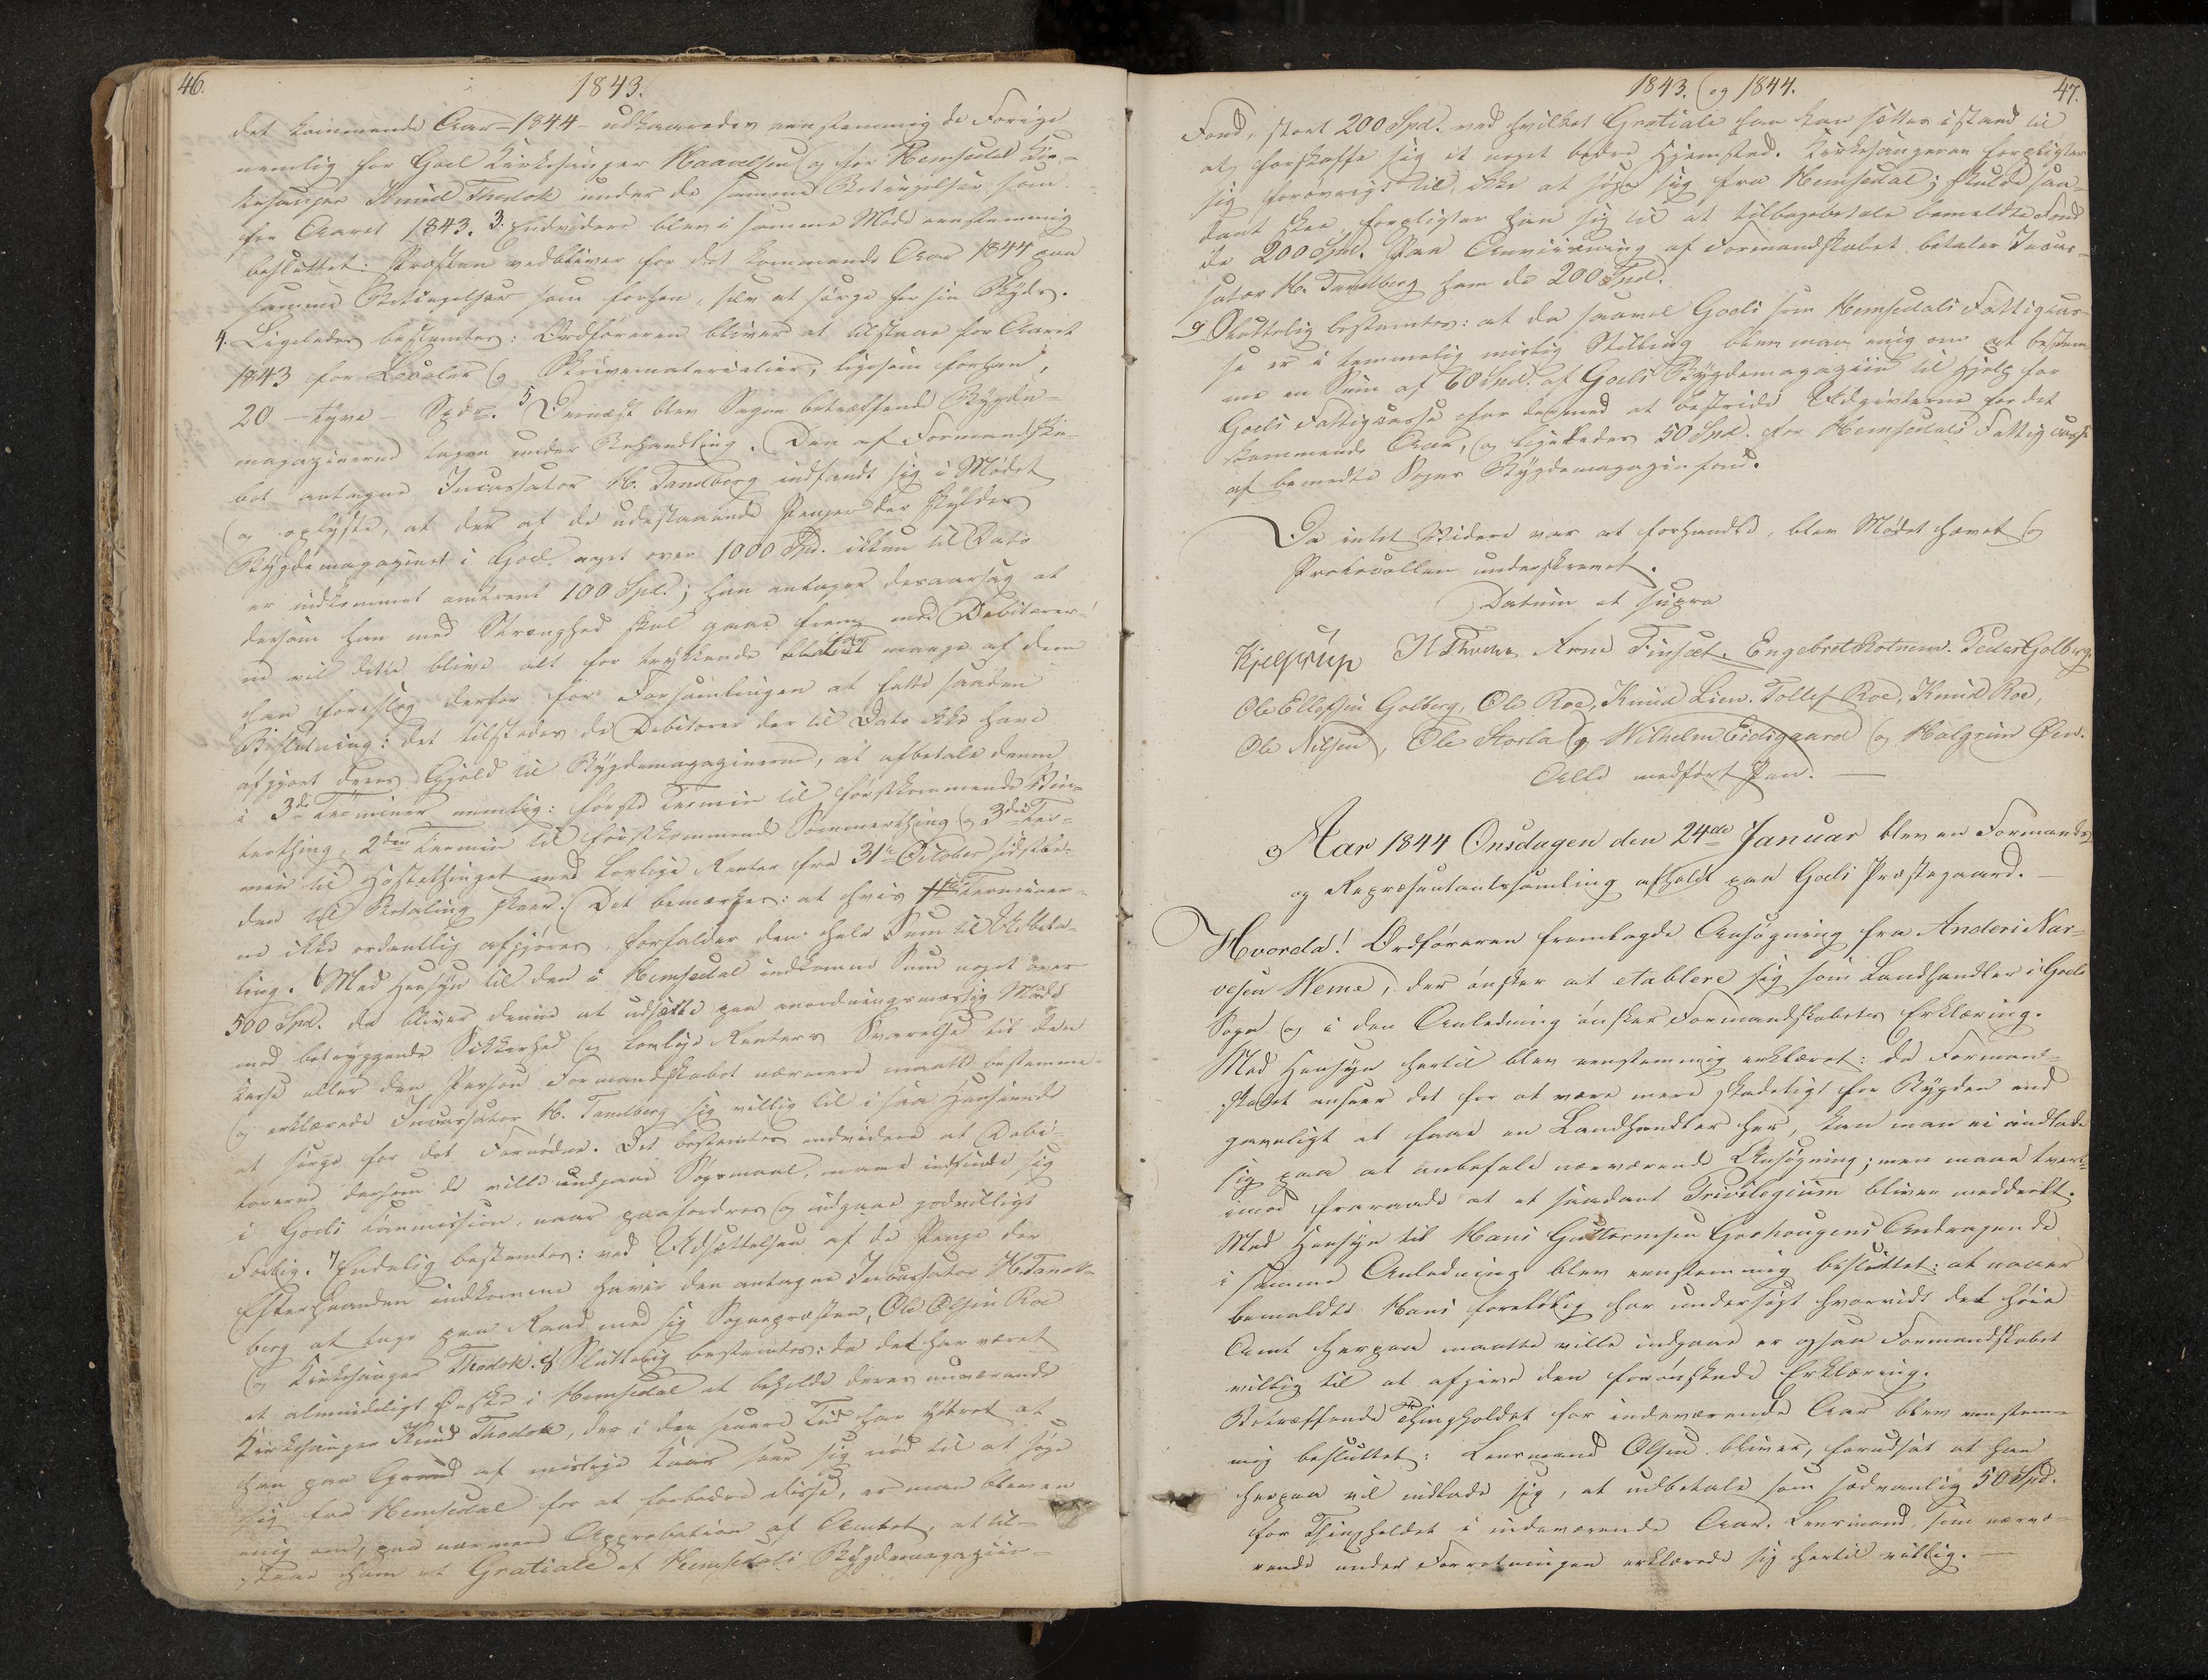 46.
1843.
det kommende Aar - 1844 - udkaaredes eenstemmig de Forige
nemlig for Goel Kirkesanger Haavelsen og for Hemsedal Kir-
kesanger Knud Thodok under de samme Betingelser som
for Aaret 1843. 3. Endvidere blev i samme Møde eenstemmig
besluttet: Præsten vedbliver for det kommende Aar 1844 paa
samme Betingelser som forhen, selv at sørge for sin Skyds.
4. Ligeledes bestemtes: Ordføreren bliver at tilstaae for Aaret
1843 for Localer og Skrivematerialier, ligesom forhen,
20 - tyve - Spdr. 5 Dernæst blev Sagen betræffende Bygde-
magazinerne tagen under Behandling. Den af Formandska-
bet antagne Incassator H. Tandberg indfandt sig i Mødet
og oplyste, at der af de udestaaende Penger der skyldes
Bygdemagazinet i Goel noget over 1000 Spd. ikkun til Dato
er indkommet omtrent 100 Spd.; han antager desaarsag at
dersom han med Strenghed skal gaae frem mod Debitorer-
ne vil dette blive alt for trykkende for mange af dem
han foreslog derfor for Forsamlingen at fatte saadan
Beslutning: det tilstedes de Debitorer der til Dato ikke have
afgjort deres Gjæld til Bygdemagazinerne, at afbetale denne
i 3de Terminer nemlig: første Termin til førstkommende Vin-
terthing, 2den Termin til førstkommende Sommerthing og 3die Ter-
min til Høstethinget med lovlige Renter fra 31te October sidstle-
den til Betaling skeer. Det bemærkes: at hvis Terminer-
ne ikke ordentlig afgjøres, forfalder den hele Sum til Udbeta-
ling. 6 Med Hensyn til den i Hemsedal indkomne Sum noget over
500 Spd. da bliver denne at udsætte paa anordningsmæssig Maade
mod betryggende Sikkerhed og lovlige Renters Svarelse til den
Kasse eller den Person Formandskabet nærmere maatte bestemme.
og erklærede Incassator H. Tandberg sig villig til i saa Henseende
at sørge for det Fornødne. Det bestemtes endvidere at Debi-
torerne dersom de ville undgaae Søgsmaal, maae indfinde sig
i Goels Commission, naar paafordres og indgaae godvilligt
Forlig. 7 Endelig bestemtes: ved Udsættelsen af de Penge der
Efterhaanden indkomme haver den antagne Incassator H. Tand-
berg at tage paa Raad med sig Sognepræsten, Ole Olsen Roe
og Kirkesanger Thodok. 8 Sluttelig bestemtes: da det har været
et almindeligt Ønske i Hemsedal at beholde deres nuværende
Kirkesanger Knud Thodok, der i den senere Tid har yttret at
han paa Grund af mislige Kaar seer sig nød til at søge
sig fra Hemsedal for at forbedre disse, er man bleven
enig om, paa nærmere Approbation af Amtet, at til-
staae ham et Gratiale af Hemsedals Bygdemagazin-
1843. og 1844.
47.
Fond, stort 200 Spd. ved hvilket Gratiale han kan sættes istand til
at forskaffe sig et noget bedre Hjemsted. Kirkesangeren forpligter
sig forøvrigt til, ikke at søge sig fra Hemsedal; skulde saa-
dant skee, forpligter han sig til at tilbagebetale bemeldte Fond
de 200 Spd. Paa Anviisning af Formandskabet betaler Incas-
sator H. Tandberg ham de 200 Spd.
9 Sluttelig bestemtes: at da saavel Goels som Hemsedals Fattigkas-
se er i temmelig mislig Stilling blev man enig om at bestem-
me en Sum af 60 Spd. af Goels Bygdemagazin til Hjelp for
Goels Fattigcasse for dermed at bestride Udgivterne for det
kommende Aar, og ligeledes 50 Spd. for Hemsedals Fattigcasse
af bemeldte Sogns Bygdemagazinfond.
Da intet Videre var at forhandle, blev Mødet hævet og
Protocollen underskrevet.
Datum ut supra
Kjelstrup Arne Finset. Engebret Rotneim. Peder Golberg.
Ole Ellefsen Golberg, Ole Roe, Knud Lien. Tollef Roe, Knud Roe,
Ole Nilsen, Ole Storla og Wilhelm Eidsgaard og Halgrim Øen.
Alle medført Pen.
Aar 1844 Onsdagen den 24de Januar blev en Formands
og Repræsentantsamling afholdt paa Goels Præstegaard.
Hvorda! Ordføreren fremlagde Ansøgning fra Anders Nar-
vesen Heme, der ønsker at etablere sig som Landhandler i Goels
Sogn og i den Anledning ønsker Formandskabets Erklæring.
Med Hensyn hertil blev eenstemmig erklæret: da Formand-
skabet anseer det for at være mere skadeligt for Bygden end
gavnligt at faae en Landhandler her, kan man ei indlade
sig paa at anbefale nærværende Ansøgning; men maae tvert-
imod fraraade at et saadant Privilegium bliver meddeelt.
Med Hensyn til Hans Guttormsen Gashougens Andragende
i samme Anledning blev eenstemmig besluttet: at naaer
bemeldte Hans foreløbig har undersøgt hvorvidt det høie
Amt herpaa maatte ville indgaae er ogsaa Formandskabet
villig til at afgive den forønskede Erklæring.
Betræffende Thingholdet for indeværende Aar blev eenstem-
mig besluttet: Lensmand Olsen bliver, forudsat at han
herpaa vil indlade sig, at udbetale som sædvanlig 50 Spd.
for Thingholdet i indeværende Aar. Lensmand, som nærvæ-
rende under Forretningen erklærede sig hertil villig.